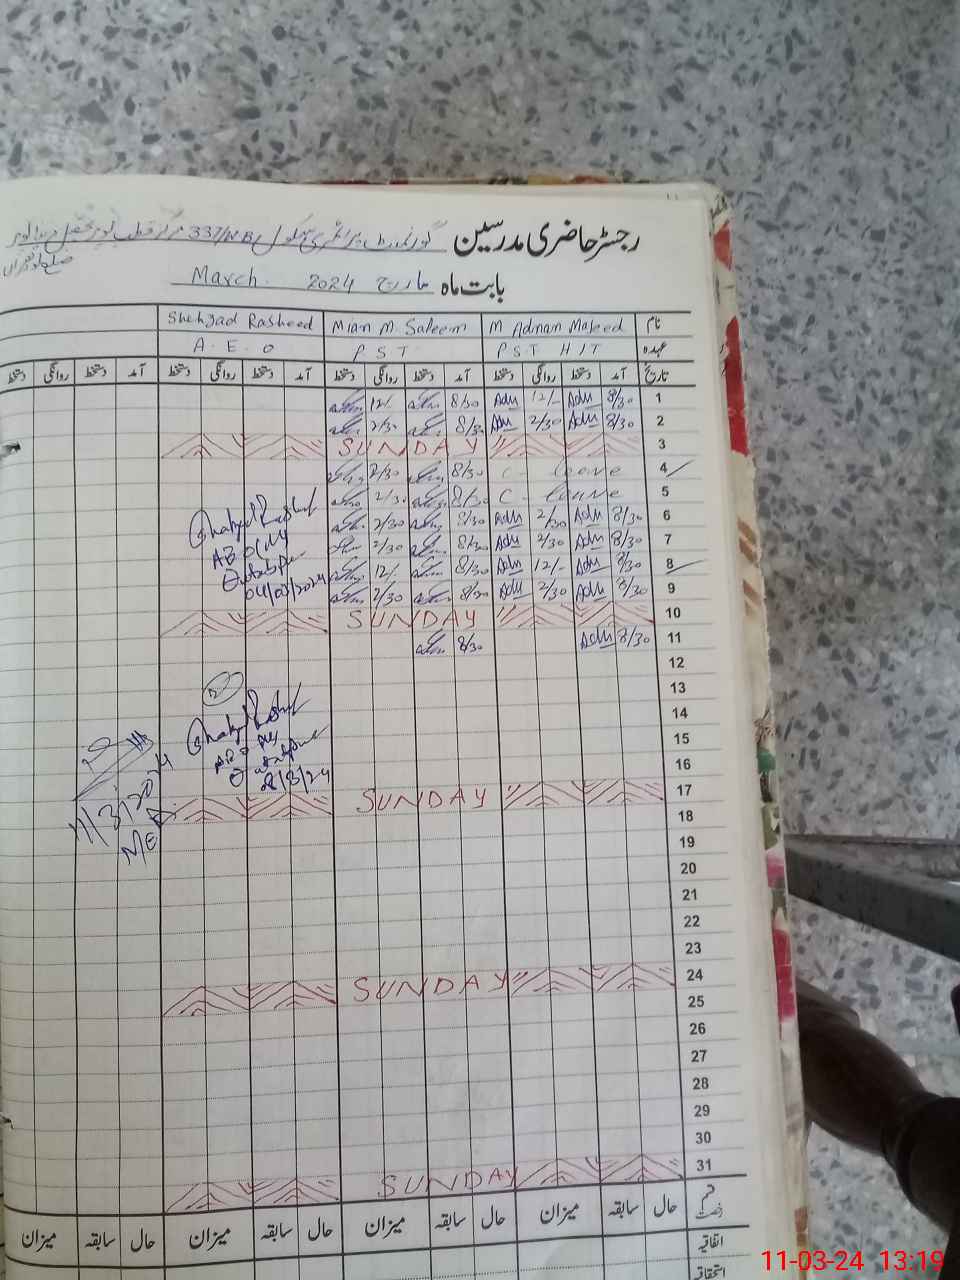 رجسٹر حاضری مدرسین گورنمنٹ پرائمری سکول 337/WB مرکز قطب پور تحصیل دنیا پور
ضلع لودھراں
بابت ماہ مارچ 2024 March.
نام M Adnan Majeed Mian M. Saleem Shehzad Rasheed
عہدہ PST HIT PST A.E.O
تاریخ آمد دستخط روانگی دستخط آمد دستخط روانگی دستخط آمد دستخط روانگی دستخط آمد دستخط روانگی دستخط
1 8/30 Adn 12/- Adn 8/30 12/-
2 8/30 Adn 2/30 Adn 8/30 2/30
3 SUNDAY
4 C - leave 8/30 2/30
5 C - leave 8/30 2/30
6 8/30 Adn 2/30 Adn 8/30 2/30
7 8/30 Adn 2/30 Adn 8/30 2/30
8 8/30 Adn 12/- Adn 8/30 12/-
9 8/30 Adn 2/30 Adn 8/30 2/30
04/03/2024
10 SUNDAY
11 8/30 Adn 8/30
12
13
14
15
16
8/3/24
17 SUNDAY
11/3/2024
18
19
20
21
22
23
24 SUNDAY
25
26
27
28
29
30
31 SUNDAY
قسم رخصت حال سابقہ میزان حال سابقہ میزان حال سابقہ میزان حال سابقہ میزان
اتفاقیہ
استحقاقیہ
11-03-24 13:19